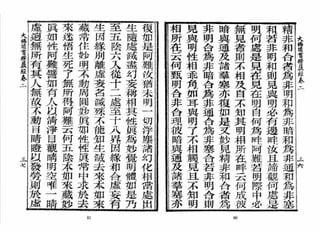 大佛頂首楞嚴經卷二
精非和合者為非明和為非暗和為非通和為非塞
和若非明和則見與明必有邊畔汝且諦觀何處是
明何處是見在見在明自何為畔阿難若明際中必
無見者則不相及自不知其明相所在畔云何成彼
暗與通及諸群塞亦復如是又妙見精非和合者為
非明合為非暗合為非通合為非塞合若非明合則
見與明性相乖角如耳與明了不相觸見且不知明
相所在云何甄明合非合理彼暗與通及諸群塞亦
復如是阿難汝猶未明一切浮塵諸幻化相當處出
生隨處滅盡幻妄稱相其性真為妙覺明體如是乃
至五陰六入從十二處至十八界因緣和合虛妄有
生因緣別離虛妄名滅殊不能知生滅去來本如來
藏常住妙明不動周圓妙真如性性真常中求於去
來迷悟生死了無所得阿難云何五陰本如來藏妙
真如性阿難譬如有人以清淨目觀晴明空唯一晴
虛迥無所有其人無故不動目睛瞪以發勞則於虛
大佛頂首楞嚴經卷二